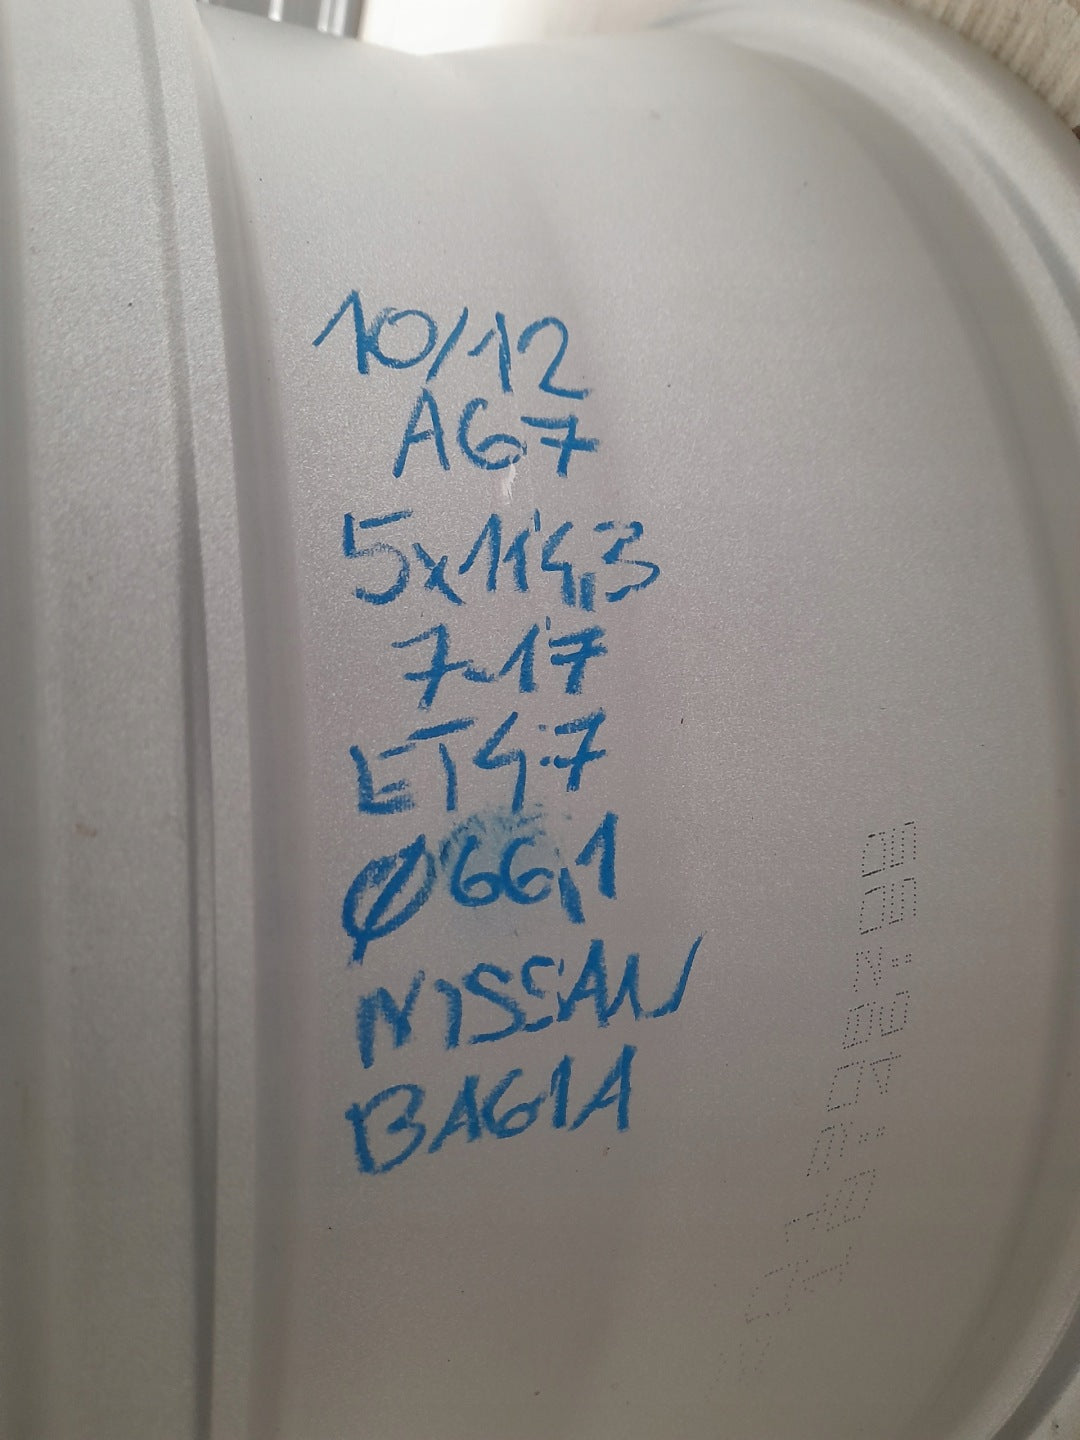 10/12
A67
5x114,3
7J17
ET47
Ø66,1
NISSAN
BA61A